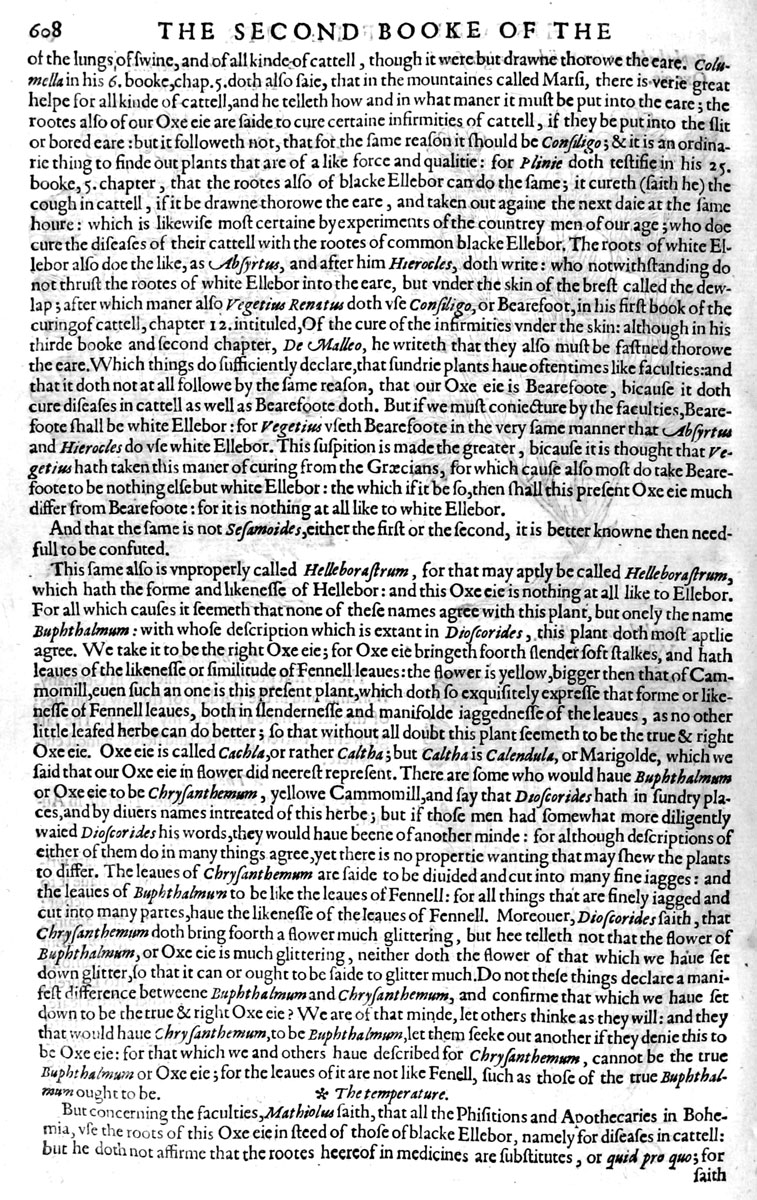 608 THE SECOND BOOKE OF THE
of the lungs, of ſwine, and of all kinde of cattell, though it were but drawne thorowe the eare. Colu-
mella in his 6. booke, chap. 5. doth alſo ſaie, that in the mountaines called Marſi, there is verie great
helpe for all kinde of cattell, and he telleth how and in what maner it muſt be put into the eare; the
rootes alſo of our Oxe eie are ſaide to cure certaine infirmities of cattell, if they be put into the ſlit
or bored eare: but it followeth not, that for the ſame reaſon it ſhould be Conſiligo; & it is an ordina-
rie thing to finde out plants that are of a like force and qualitie: for Plinie doth teſtifie in his 25.
booke, 5. chapter, that the rootes alſo of blacke Ellebor can do the ſame; it cureth (ſaith he) the
cough in cattell, if it be drawne thorowe the eare, and taken out againe the next daie at the ſame
houre: which is likewiſe moſt certaine by experiments of the countrey men of our age; who doe
cure the diſeaſes of their cattell with the rootes of common blacke Ellebor. The roots of white El-
lebor alſo doe the like, as Abſyrtus, and after him Hierocles, doth write: who notwithſtanding do
not thruſt the rootes of white Ellebor into the eare, but vnder the skin of the breſt called the dew-
lap; after which maner alſo Vegetius Renatus doth vſe Conſiligo, or Bearefoot, in his firſt book of the
curing of cattell, chapter 12. intituled, Of the cure of the infirmities vnder the skin: although in his
thirde booke and ſecond chapter, De Malleo, he writeth that they alſo muſt be faſtned thorowe
the eare. Which things do ſufficiently declare, that ſundrie plants haue oftentimes like faculties: and
that it doth not at all followe by the ſame reaſon, that our Oxe eie is Bearefoote, bicauſe it doth
cure diſeaſes in cattell as well as Bearefoote doth. But if we muſt coniecture by the faculties, Beare-
foote ſhall be white Ellebor: for Vegetius vſeth Bearefoote in the very ſame manner that Abſyrtus
and Hierocles do vſe white Ellebor. This ſuſpition is made the greater, bicauſe it is thought that Ve-
getius hath taken this maner of curing from the Græcians, for which cauſe alſo moſt do take Beare-
foote to be nothing elſe but white Ellebor: the which if it be ſo, then ſhall this preſent Oxe eie much
differ from Bearefoote: for it is nothing at all like to white Ellebor.
And that the ſame is not Seſamoides, either the firſt or the ſecond, it is better knowne then need-
full to be confuted.
This ſame alſo is vnproperly called Helleboraſtrum, for that may aptly be called Helleboraſtrum,
which hath the forme and likeneſſe of Hellebor: and this Oxe eie is nothing at all like to Ellebor.
For all which cauſes it ſeemeth that none of theſe names agree with this plant, but onely the name
Buphthalmum: with whoſe deſcription which is extant in Dioſcorides, this plant doth moſt aptlie
agree. We take it to be the right Oxe eie; for Oxe eie bringeth foorth ſlender ſoft ſtalkes, and hath
leaues of the likeneſſe or ſimilitude of Fennell leaues: the flower is yellow, bigger then that of Cam-
momill, euen ſuch an one is this preſent plant, which doth ſo exquiſitely expreſſe that forme or like-
neſſe of Fennell leaues, both in ſlenderneſſe and manifolde iaggedneſſe of the leaues, as no other
little leafed herbe can do better; ſo that without all doubt this plant ſeemeth to be the true & right
Oxe eie. Oxe eie is called Cachla, or rather Caltha; but Caltha is Calendula, or Marigolde, which we
ſaid that our Oxe eie in flower did neereſt repreſent. There are ſome who would haue Buphthalmum
or Oxe eie to be Chryſanthemum, yellowe Cammomill, and ſay that Dioſcorides hath in ſundry pla-
ces, and by diuers names intreated of this herbe; but if thoſe men had ſomewhat more diligently
waied Dioſcorides his words, they would haue beene of another minde: for although deſcriptions of
either of them do in many things agree, yet there is no propertie wanting that may ſhew the plants
to differ. The leaues of Chryſanthemum are ſaide to be diuided and cut into many fine iagges: and
the leaues of Buphthalmum to be like the leaues of Fennell: for all things that are finely iagged and
cut into many partes, haue the likeneſſe of the leaues of Fennell. Moreouer, Dioſcorides ſaith, that
Chryſanthemum doth bring foorth a flower much glittering, but hee telleth not that the flower of
Buphthalmum, or Oxe eie is much glittering, neither doth the flower of that which we haue ſet
down glitter, ſo that it can or ought to be ſaide to glitter much. Do not theſe things declare a mani-
feſt difference betweene Buphthalmum and Chryſanthemum, and confirme that which we haue ſet
down to be the true & right Oxe eie? We are of that minde, let others thinke as they will: and they
that would haue Chryſanthemum, to be Buphthalmum, let them ſeeke out another if they denie this to
be Oxe eie: for that which we and others haue deſcribed for Chryſanthemum, cannot be the true
Buphthalmum or Oxe eie; for the leaues of it are not like Fenell, ſuch as thoſe of the true Buphthal-
mum ought to be. ❧ The temperature.
But concerning the faculties, Mathiolus ſaith, that all the Phiſitions and Apothecaries in Bohe-
mia, vſe the roots of this Oxe eie in ſteed of thoſe of blacke Ellebor, namely for diſeaſes in cattell:
but he doth not affirme that the rootes heereof in medicines are ſubſtitutes, or quid pro quo; for
ſaith